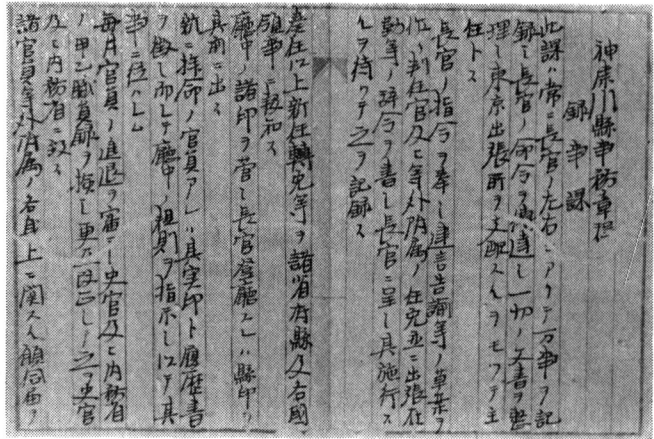 神奈川縣事務章程
録事課
此課ハ常ニ長官ノ左右ニアリテ万事ヲ記
録シ長官ノ命令ヲ達シ一切ノ文書ヲ整
理シ東京出張所ヲ支配スルヲモツテ主
任トス
長官ノ指令ヲ奉シ建言告諭等ノ草案ヲ
判任官及ヒ等外附属ノ任免並ニ出張在
勤等ノ辞令ヲ書シ長官ニ呈シ其施行ス
ルヲ待ツテ之ヲ記録ス
奏任以上新任轉免等ヲ諸省府縣及各國
領事ニ報知ス
廳中諸印ヲ管シ長官登廳スレハ縣印ヲ
其前ニ出ス
新ニ拝命ノ官員アレハ其実印ト履歴書
ヲ徴シ而シテ廳中ノ規則ヲ指示シ以テ其
事ニ従ハシム
毎月官員ノ進退ヲ審ニシ史官及ヒ内務省
ノ甲乙職員録ヲ検シ更ニ改正シ之ヲ史官
及ヒ内務省ニ致ス
諸官員等外附属ノ各自身上ニ関スル願伺届ヲ